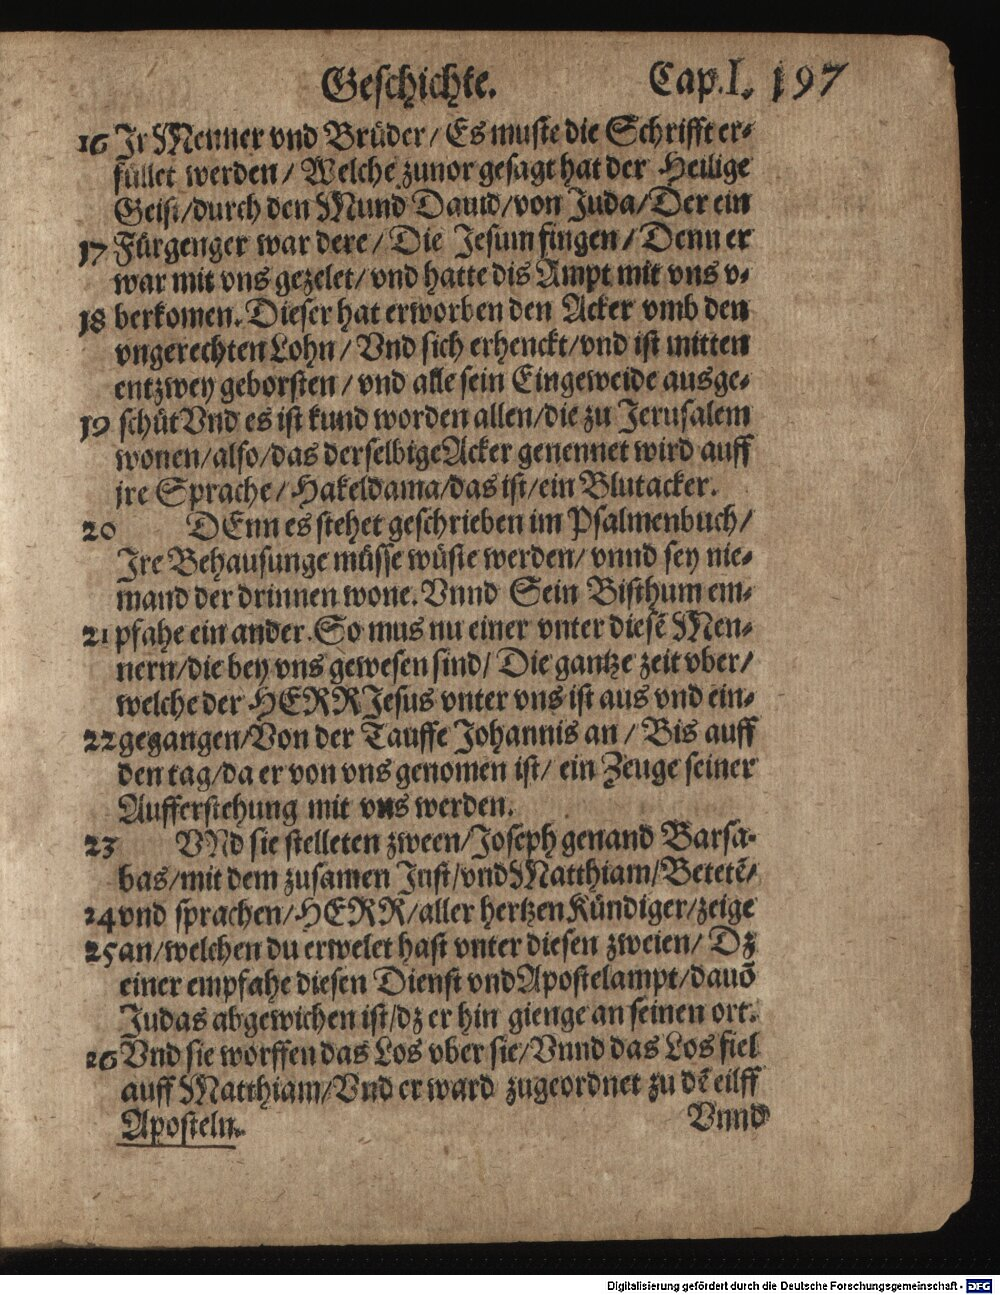 Geschichte. Cap.I. 197
16 Jr Menner vnd Brüder/ Es muste die Schrifft er-
füllet werden/ Welche zuuor gesagt hat der Heilige
Geist/durch den Mund Dauid/von Juda/Der ein
17 Fürgenger war dere/ Die Jesum fingen/ Denn er
war mit vns gezelet/ vnd hatte dis Ampt mit vns v-
18 berkomen. Dieser hat erworben den Acker vmb den
vngerechten Lohn/ Vnd sich erhenckt/vnd ist mitten
entzwey geborsten/ vnd alle sein Eingeweide ausge-
19 schüt Vnd es ist kund worden allen/die zu Jerusalem
wonen/also/das derselbige Acker genennet wird auff
jre Sprache/ Hakeldama/das ist/ein Blutacker.
20 DEnn es stehet geschrieben im Psalmenbuch/
Ire Behausunge müsse wüste werden/ vnnd sey nie-
mand der drinnen wone. Vnnd Sein Bisthum em-
21 pfahe ein ander. So mus nu einer vnter diesē Men-
nern/die bey vns gewesen sind/ Die gantze zeit vber/
welche der HERR Jesus vnter vns ist aus vnd ein-
22 gegangen/Von der Tauffe Johannis an/ Bis auff
den tag/da er von vns genomen ist/ ein Zeuge seiner
Aufferstehung mit vns werden.
23 VNd sie stelleten zween/Joseph genand Barsa-
bas/mit dem zusamen Just/vnd Matthiam/Betetē/
24 vnd sprachen/HERR/aller hertzen Kündiger/zeige
25 an/welchen du erwelet hast vnter diesen zweien/ Dz
einer empfahe diesen Dienst vnd Apostelampt/dauō
Judas abgewichen ist/dz er hin gienge an seinen ort.
26 Vnd sie worffen das Los vber sie/Vnnd das Los fiel
auff Matthiam/Vnd er ward zugeordnet zu dē eilff
Aposteln.
Vnnd
Digitalisierung gefördert durch die Deutsche Forschungsgemeinschaft - DFG